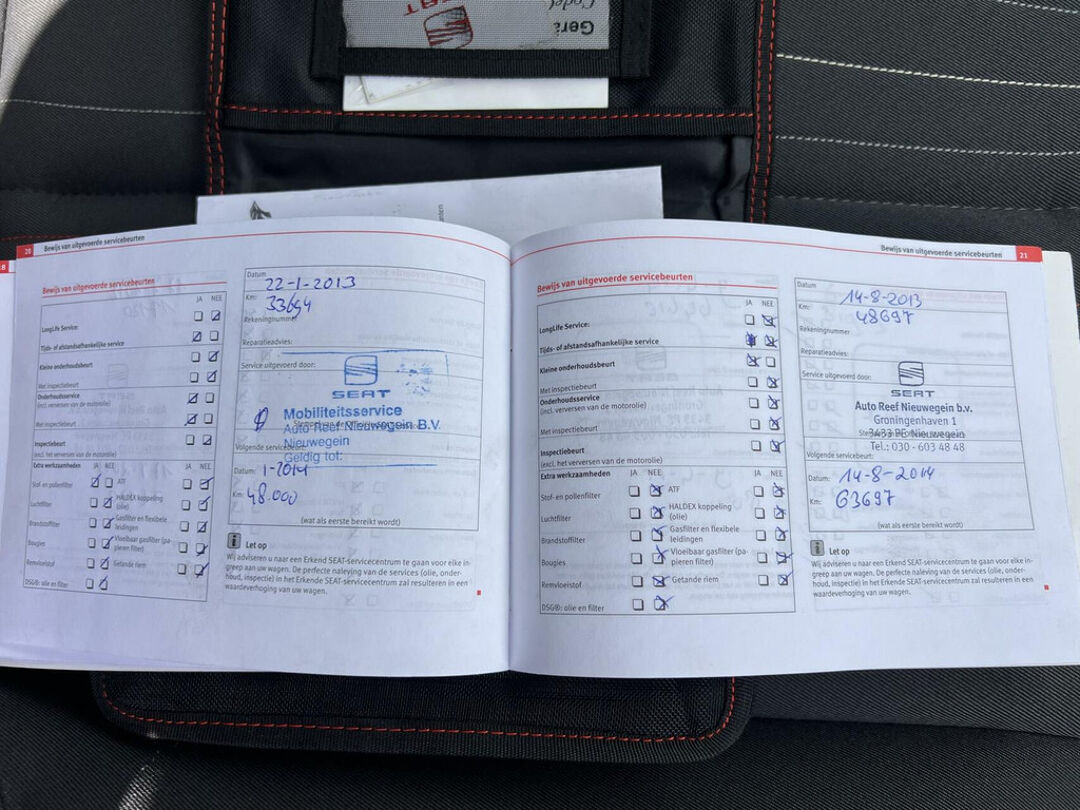 SEAT
Gerä
Codel
nten
8
20 Bewijs van uitgevoerde servicebeurten
Bewijs van uitgevoerde servicebeurten
JA NEE
LongLife Service:
Tijds- of afstandsafhankelijke service
Kleine onderhoudsbeurt
Met inspectiebeurt
Onderhoudsservice
(incl. verversen van de motorolie)
Met inspectiebeurt
Inspectiebeurt
(excl. het verversen van de motorolie)
Extra werkzaamheden JA NEE JA NEE
Stof- en pollenfilter ATF
Luchtfilter HALDEX koppeling
(olie)
Brandstoffilter Gasfilter en flexibele
leidingen
Bougies Vloeibaar gasfilter (pa-
pieren filter)
Remvloeistof Getande riem
DSG®: olie en filter
Datum
22-1-2013
Km:
33694
Rekeningnummer
Reparatieadvies:
Service uitgevoerd door:
SEAT
Mobiliteitsservice
Auto Reef Nieuwegein B.V.
Nieuwegein
Geldig tot:
Volgende servicebeurt:
Datum: 1-2014
Km: 48.000
(wat als eerste bereikt wordt)
i Let op
Wij adviseren u naar een Erkend SEAT-servicecentrum te gaan voor elke in-
greep aan uw wagen. De perfecte naleving van de services (olie, onder-
houd, inspectie) in het Erkende SEAT-servicecentrum zal resulteren in een
waardeverhoging van uw wagen.
Bewijs van uitgevoerde servicebeurten 21
Bewijs van uitgevoerde servicebeurten
JA NEE
LongLife Service:
Tijds- of afstandsafhankelijke service
Kleine onderhoudsbeurt
Met inspectiebeurt
Onderhoudsservice
(incl. verversen van de motorolie)
Met inspectiebeurt
Inspectiebeurt
(excl. het verversen van de motorolie)
Extra werkzaamheden JA NEE JA NEE
Stof- en pollenfilter ATF
Luchtfilter HALDEX koppeling
(olie)
Brandstoffilter Gasfilter en flexibele
leidingen
Bougies Vloeibaar gasfilter (pa-
pieren filter)
Remvloeistof Getande riem
DSG®: olie en filter
Datum
14-8-2013
Km: 48697
Rekeningnummer
Reparatieadvies:
Service uitgevoerd door:
SEAT
Auto Reef Nieuwegein b.v.
Groningenhaven 1
3433 PE Nieuwegein
Tel.: 030 - 603 48 48
Volgende servicebeurt:
Datum: 14-8-2014
Km: 63697
(wat als eerste bereikt wordt)
i Let op
Wij adviseren u naar een Erkend SEAT-servicecentrum te gaan voor elke in-
greep aan uw wagen. De perfecte naleving van de services (olie, onder-
houd, inspectie) in het Erkende SEAT-servicecentrum zal resulteren in een
waardeverhoging van uw wagen.